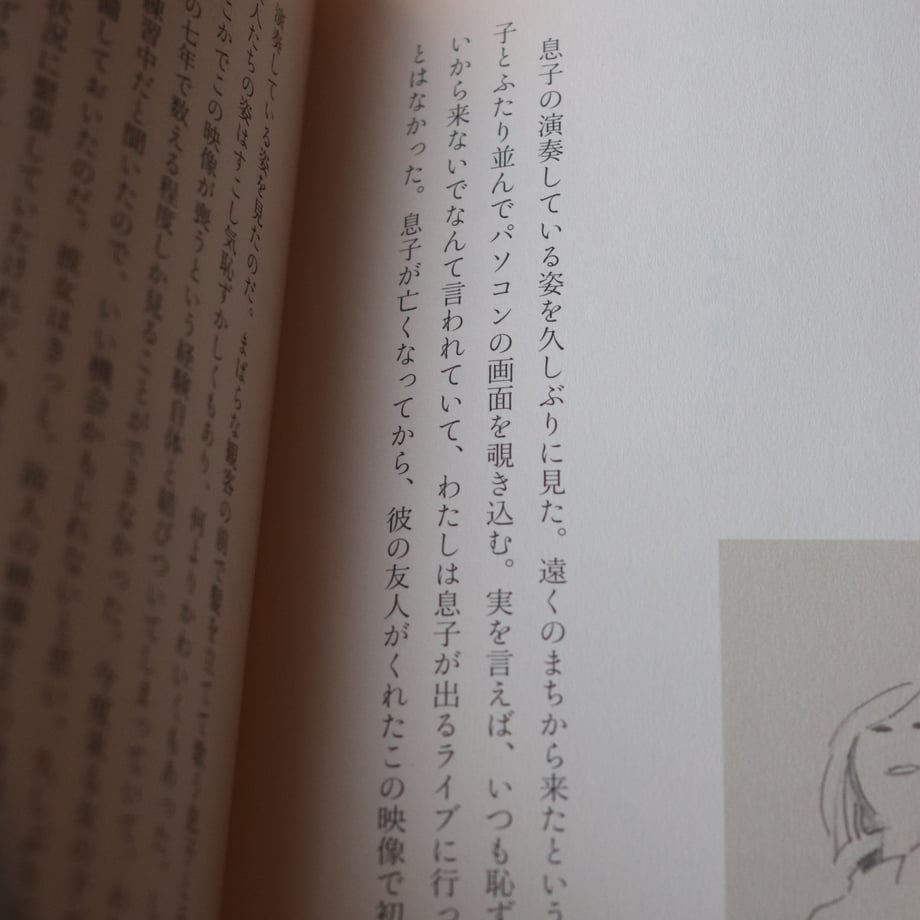 息子の演奏している姿を久しぶりに見た。遠くのまちから来たという
子とふたり並んでパソコンの画面を覗き込む。実を言えば、いつも恥ず
いから来ないでなんて言われていて、わたしは息子が出るライブに行っ
とはなかった。息子が亡くなってから、彼の友人がくれたこの映像で初
演奏している姿を見たのだ。まばらな観客の前で
人たちの姿はすこし気恥ずかしくもあり、何よりかわいくもあった。
こかでこの映像が喪うという経験自体と結びついてしまっていて、
の七年で数える程度しか見ることができなかった。今度
練習中だと聞いたので、いい機会かもしれないと思い、
備しておいたのだ。彼女はきっと、
状況に緊張していたけれど、